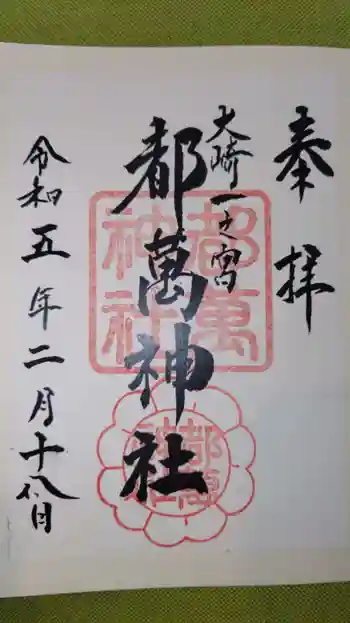 奉拝
大崎一之宮
都萬神社
令和五年二月十八日
都萬神社
都萬神社